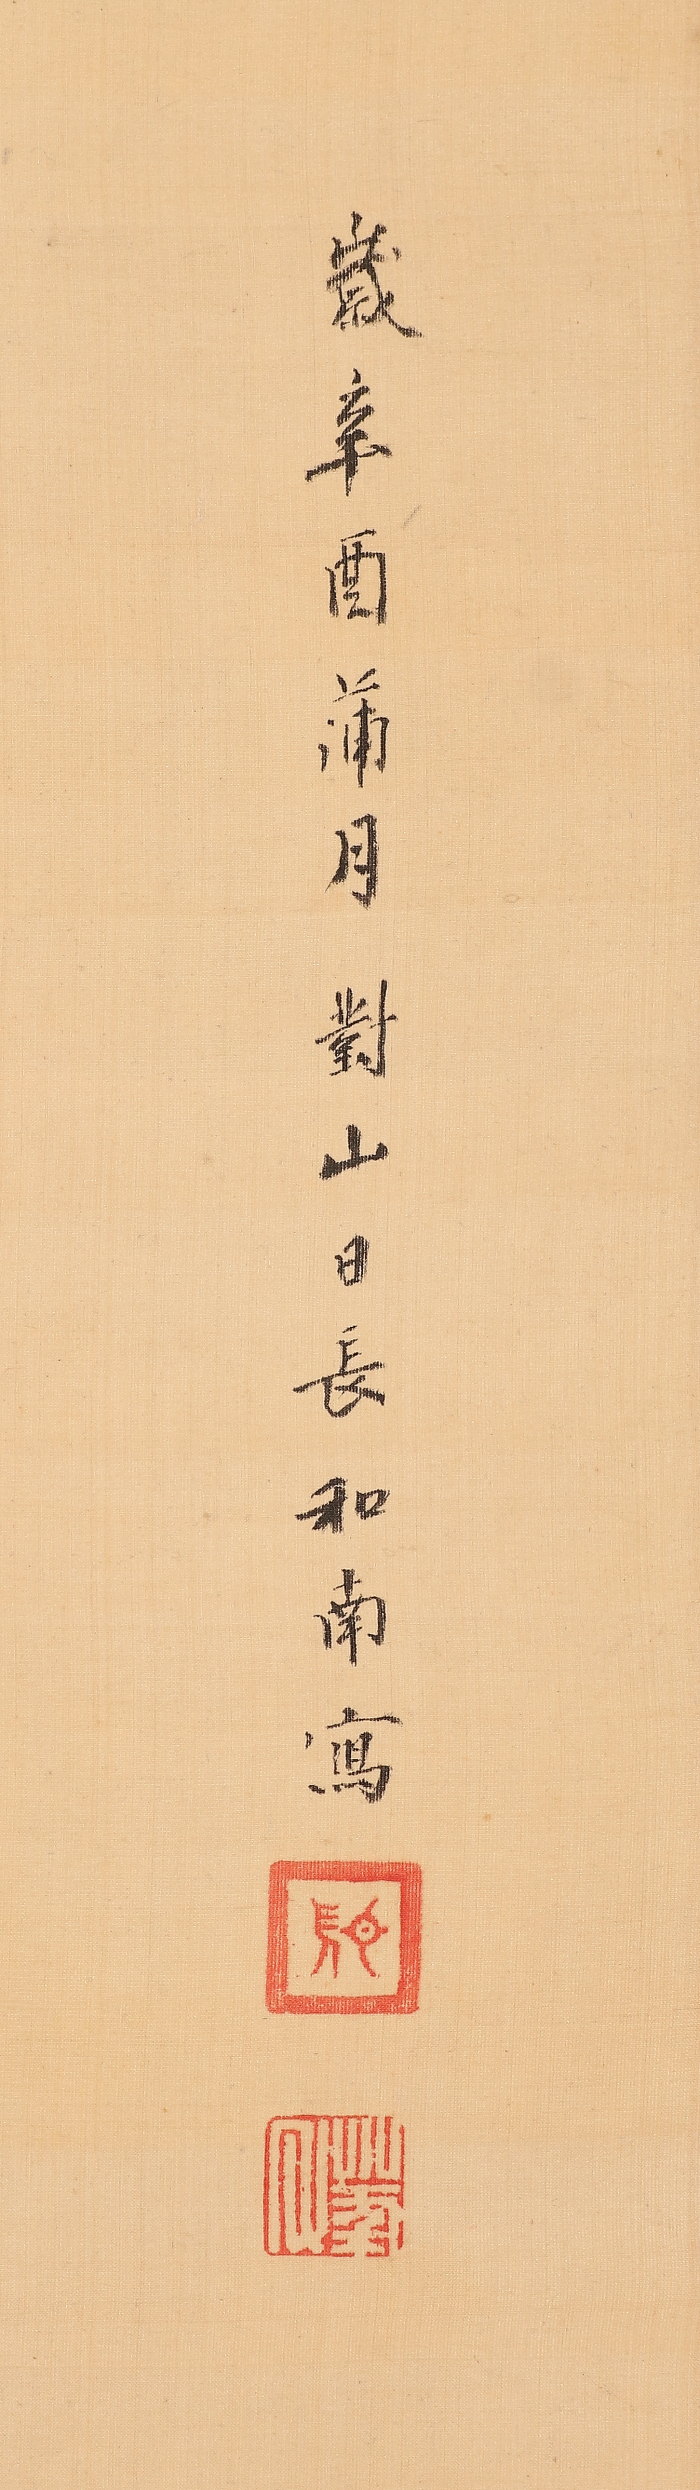 歳辛酉蒲月對山日長和南寫